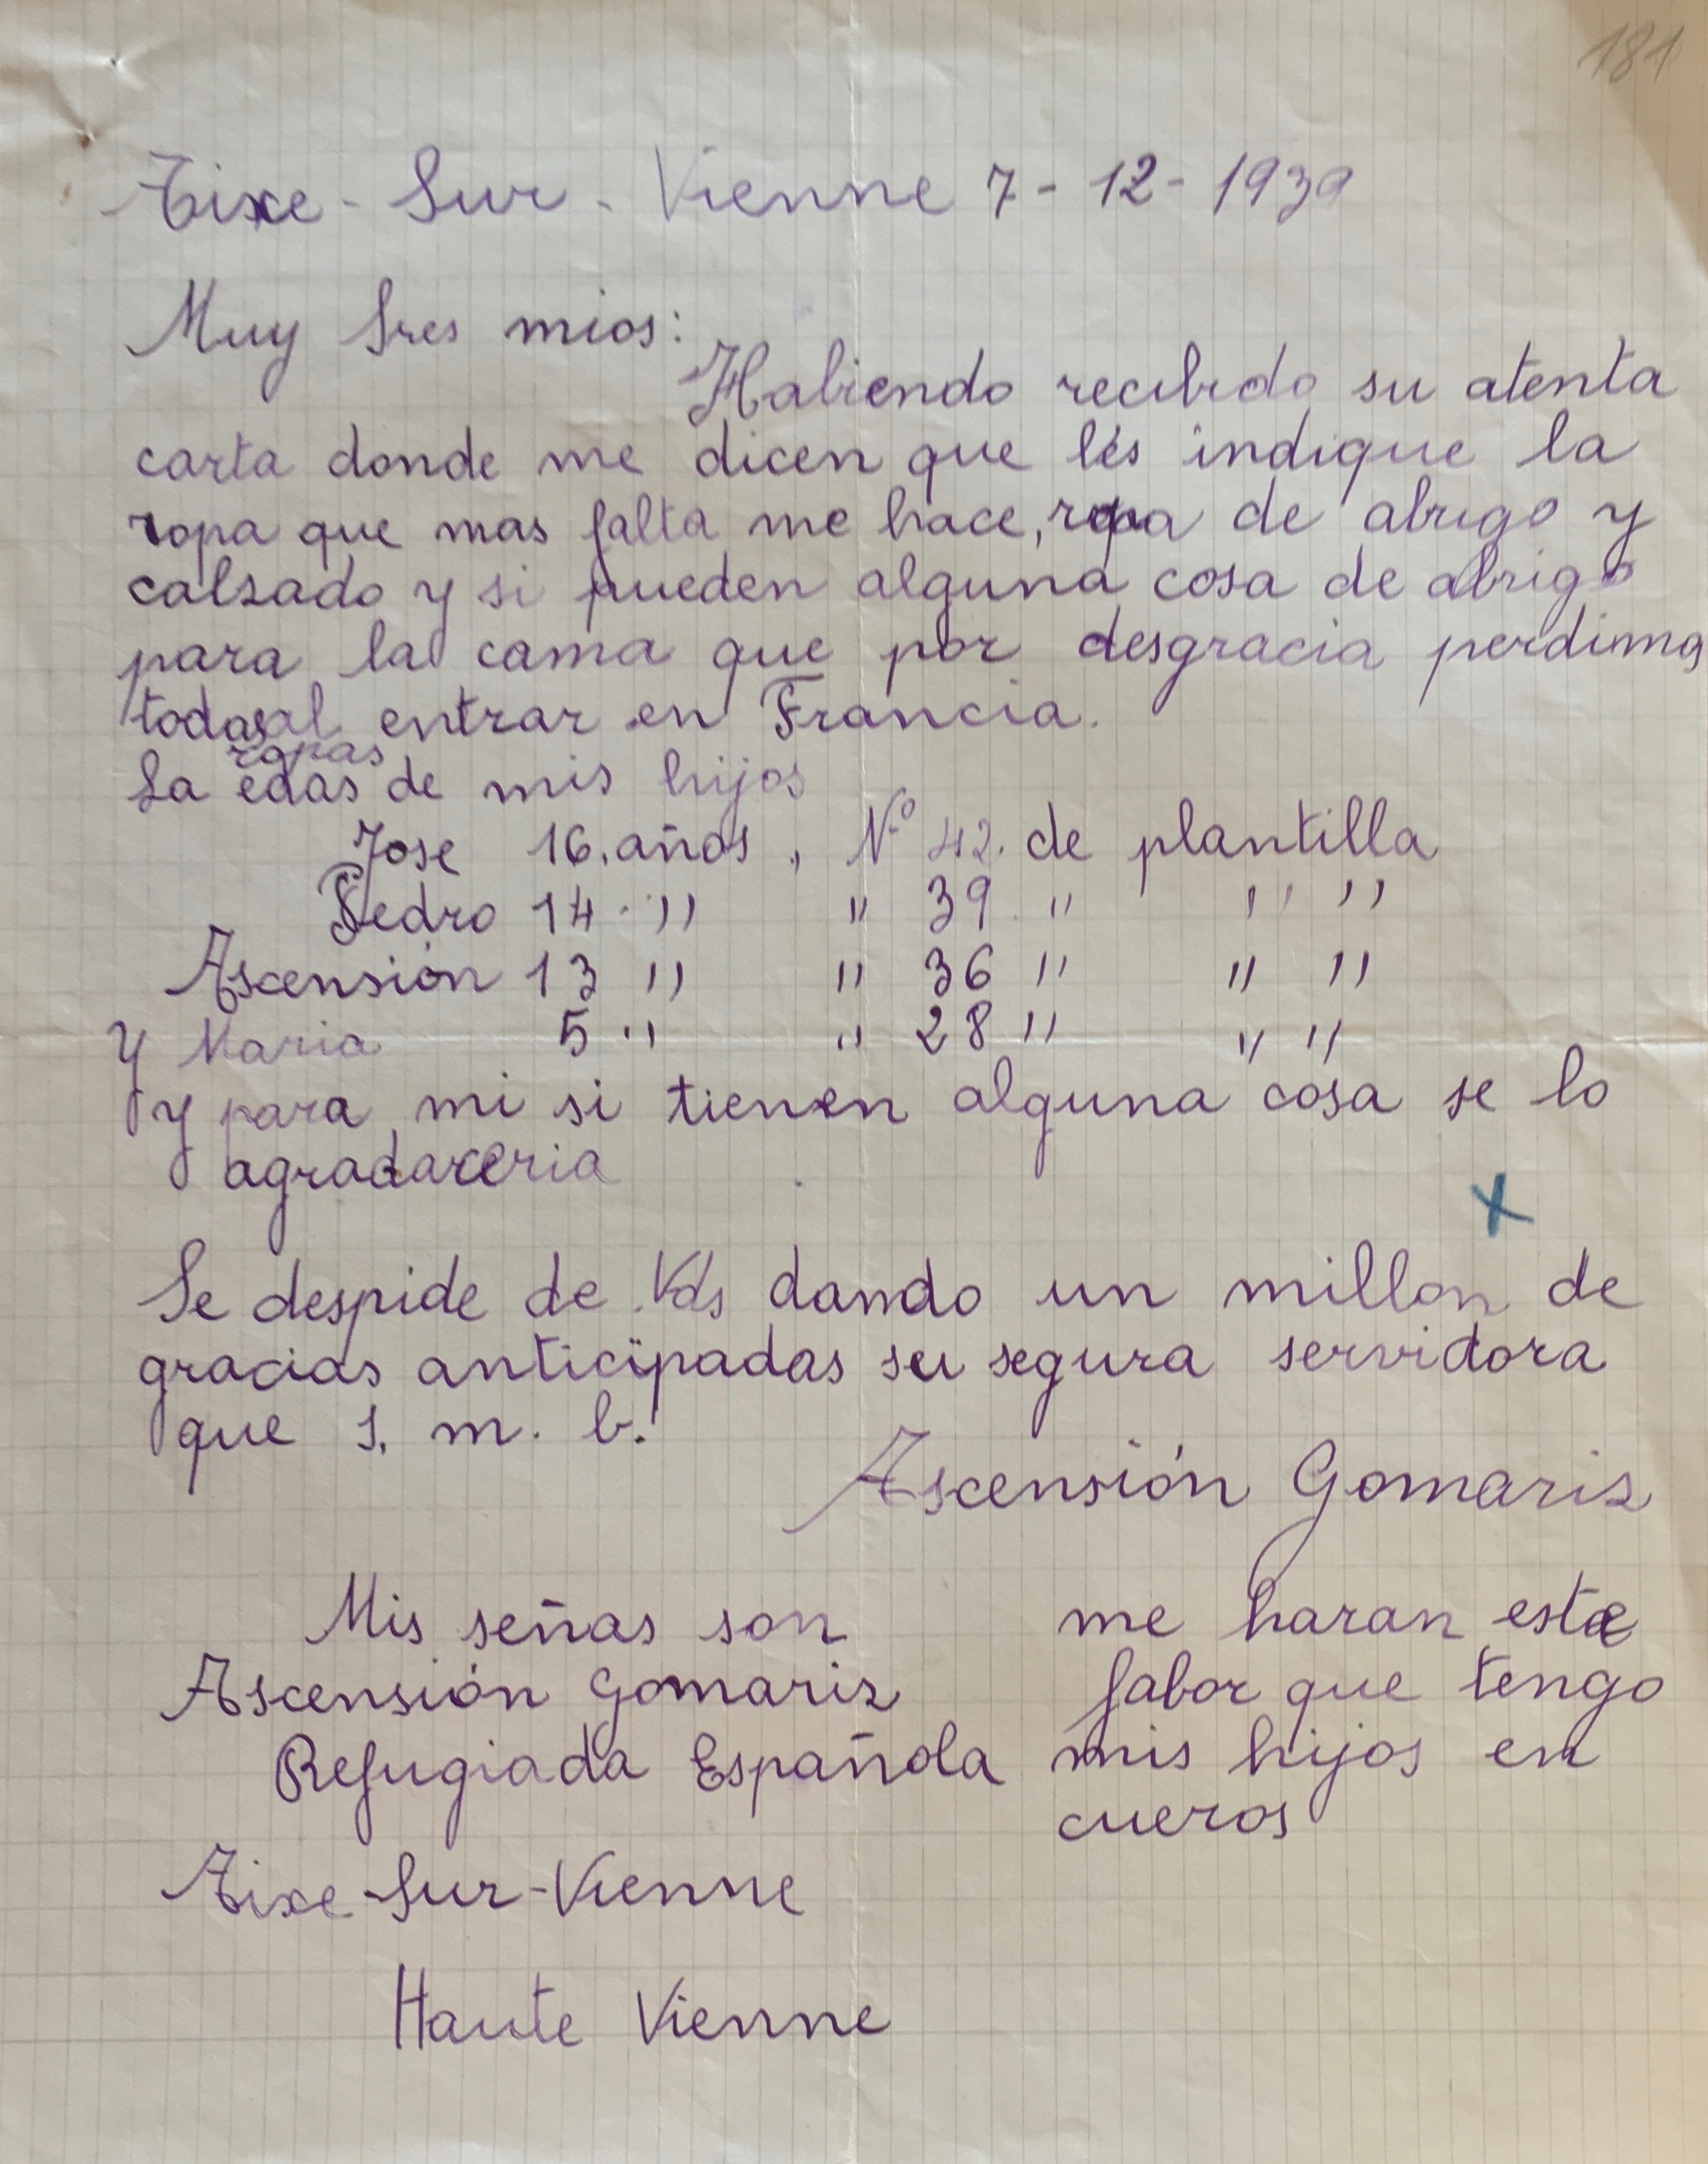 181
Aixe - Sur - Vienne 7 - 12 - 1939
Muy Sres mios:
Habiendo recibido su atenta
carta donde me dicen que les indique la
ropa que mas falta me hace, ropa de abrigo y
calsado y si pueden alguna cosa de abrigo
para la cama que por desgracia perdimos
todas al entrar en Francia.
ropas
La edas de mis hijos
Jose 16. años, Nº 42. de plantilla
Pedro 14 " " 39 " " "
Ascensión 13 " " 36 " " "
y Maria 5 " " 28 " " "
y para mi si tienen alguna cosa se lo
agradaxeria
Se despide de Vds dando un millon de
gracias anticipadas su segura servidora
que s. m. b.
Ascensión Gomariz
Mis señas son
Ascensión Gomariz
Refugiada Española
Aixe-Sur-Vienne
Haute Vienne
me haran este
fabor que tengo
mis hijos en
cueros